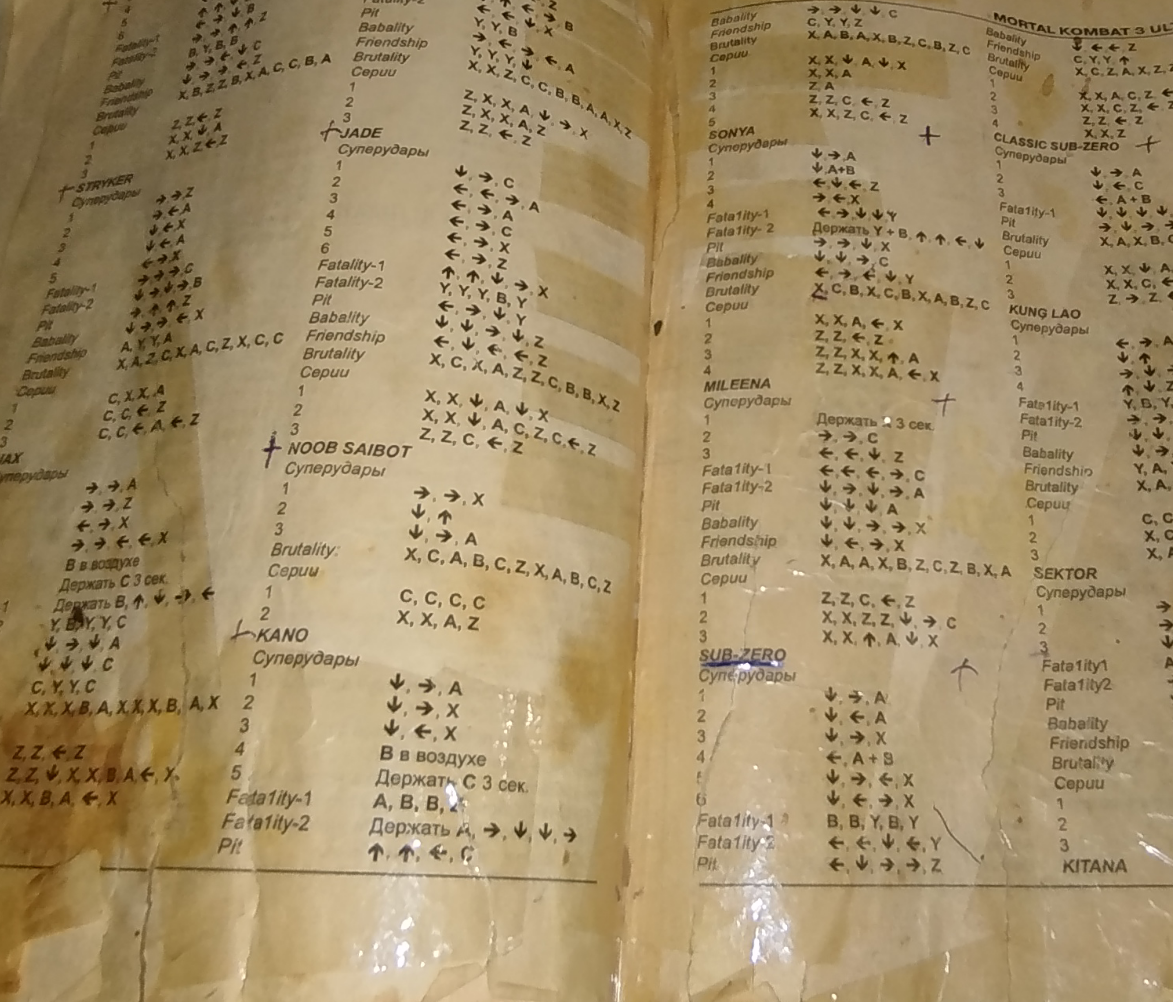 Fatality-1
Fatality-2 B, Y, B, B
Pit
Babality
Friendship
Brutality X, B, Z, Z, B, X, A, C, C, B, A
Серии
1 Z, Z, ←, Z
2 X, X, ↓, A
3 X, X, Z, ←, Z
STRYKER
Суперудары
1 →, →, Z
2 →, ←, A
3 ↓, ←, X
4 ↓, ←, A
5 ←, →, X
Fatality-1 →, →, →, C
Fatality-2 →, ↓, →, ↓, B
Pit →, ↑, ↑, Z
Babality ↓, →, →, ←, X
Friendship A, Y, Y, A
Brutality X, A, Z, C, X, A, C, Z, X, C, C
Серии
1 C, X, X, A
2 C, C, ←, Z
3 C, C, ←, A, ←, Z
→, →, A
→, →, Z
←, →, X
→, →, ←, ←, X
B в воздухе
Держать C 3 сек.
Держать B, ↑, ↓, →, ←
Y, B, Y, Y, C
↓, →, ↓, A
↓, ↓, ↓, C
C, Y, Y, C
X, X, X, B, A, X, X, X, B, A, X
Z, Z, ←, Z
Z, Z, ↓, X, X, B, A, ←, X
X, X, B, A, ←, X
Pit
Babality
Friendship
Brutality X, X, Z, C, C, B, B, A, A, X, Z
Серии
1 Z, X, X, A, ↓, →, X
2 Z, X, X, A, Z
3 Z, Z, ←, Z
JADE
Суперудары
1 ↓, →, C
2 ←, ←, →, A
3 ←, →, A
4 ←, →, C
5 ←, →, X
6 ←, →, Z
Fatality-1 ↑, ↑, ↓, →, X
Fatality-2 Y, Y, Y, B, Y
Pit ←, →, ↓, Y
Babality ↓, ↓, →, ↓, Z
Friendship ←, ↓, ←, ←, Z
Brutality X, C, X, A, Z, Z, C, B, B, X, Z
Серии
1 X, X, ↓, A, ↓, X
2 X, X, ↓, A, C, Z, C, ←, Z
3 Z, Z, C, ←, Z
NOOB SAIBOT
Суперудары
1 →, →, X
2 ↓, ↑
3 ↓, →, A
Brutality: X, C, A, B, C, Z, X, A, B, C, Z
Серии
1 C, C, C, C
2 X, X, A, Z
KANO
Суперудары
1 ↓, →, A
2 ↓, →, X
3 ↓, ←, X
4 B в воздухе
5 Держать C 3 сек.
Fata1ity-1 A, B, B,
Fata1ity-2 Держать A, →, ↓, ↓, →
Pit ↑, ↑, ←, C
Babality →, →, ↓, ↓, C
Friendship C, Y, Y, Z
Brutality X, A, B, A, X, B, Z, C, B, Z, C
Серии
1 X, X, ↓, A, ↓, X
2 X, X, A
3 Z, A
4 Z, Z, C, ←, Z
5 X, X, Z, C, ←, Z
SONYA
Суперудары
1 ↓, →, A
2 ↓, A+B
3 ←, ↓, ←, Z
4 →, ←, X
Fata1ity-1 ←, →, ↓, ↓, Y
Fata1ity- 2 Держать Y + B, ↑, ↑, ←, ↓
Pit →, →, ↓, X
Babality ↓, ↓, →, C
Friendship ←, →, ←, ↓, Y
Brutality X, C, B, X, C, B, X, A, B, Z, C
Серии
1 X, X, A, ←, X
2 Z, Z, ←, Z
3 Z, Z, X, X, ↑, A
4 Z, Z, X, X, A, ←, X
MILEENA
Суперудары
1 Держать 3 сек.
2 →, →, C
3 ←, ←, ↓, Z
Fata1ity-1 ←, ←, ←, →, C
Fata1ity-2 ↓, →, ↓, →, A
Pit ↓, ↓, ↓, A
Babality ↓, ↓, →, →, X
Friendship ↓, ←, →, X
Brutality X, A, A, X, B, Z, C, Z, B, X, A
Серии
1 Z, Z, C, ←, Z
2 X, X, Z, Z, ↓, →, C
3 X, X, ↑, A, ↓, X
SUB-ZERO
Суперудары
1 ↓, →, A
2 ↓, ←, A
3 ↓, →, X
4 ←, A + B
↓, →, ←, X
6 ↓, ←, →, X
Fata1ity-1 B, B, Y, B, Y
Fata1ity-2 ←, ←, ↓, ←, Y
Pit ←, ↓, →, →, Z
MORTAL KOMBAT 3 UL
Babality ↓, ←, ←, Z
Friendship C, Y, Y, ↑
Brutality X, C, Z, A, X, Z,
Серии
X, X, A, C, Z, ←
2 X, X, C, Z, ←
3 Z, Z, ←, Z
4 X, X, Z
CLASSIC SUB-ZERO
Суперудары
1 ↓, →, A
2 ↓, ←, C
3 ←, A + B
Fata1ity-1 ↓, ↓, ↓, ↓,
Pit →, ↓, →,
Brutality X, A, X, B,
Серии
1 X, X, ↓, A
2 X, X, C, ←
3 Z, →, Z,
KUNG LAO
Суперудары
1 ←, →, A
2 ↓, ↑
3 →, ↓,
4 ↑, ↓,
Fata1ity-1 Y, B, Y,
Fata1ity-2 →, →,
Pit ↓, ↓,
Babality ↓, →,
Friendship Y, A,
Brutality X, A,
Серии
1 C, C
2 X, C
3 X, A
SEKTOR
Суперудары
1 →
2 →
3 ↓
Fata1ity1
Fata1ity2
Pit
Babality
Friendship
Brutality
Серии
1
2
3
KITANA